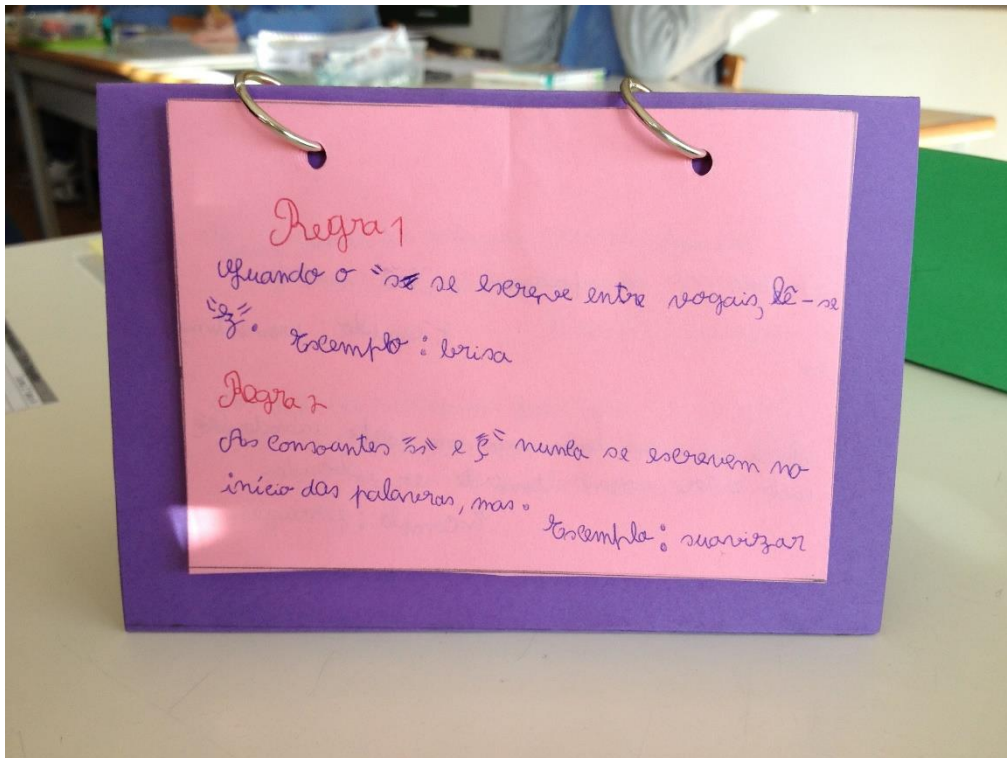 Regra 1
Quando o "s" se escreve entre vogais, lê-se
"z". Exemplo: brisa
Regra 2
As consoantes "ss" e "ç" nunca se escrevem no
início das palavras, mas.
Exemplo: suavizar